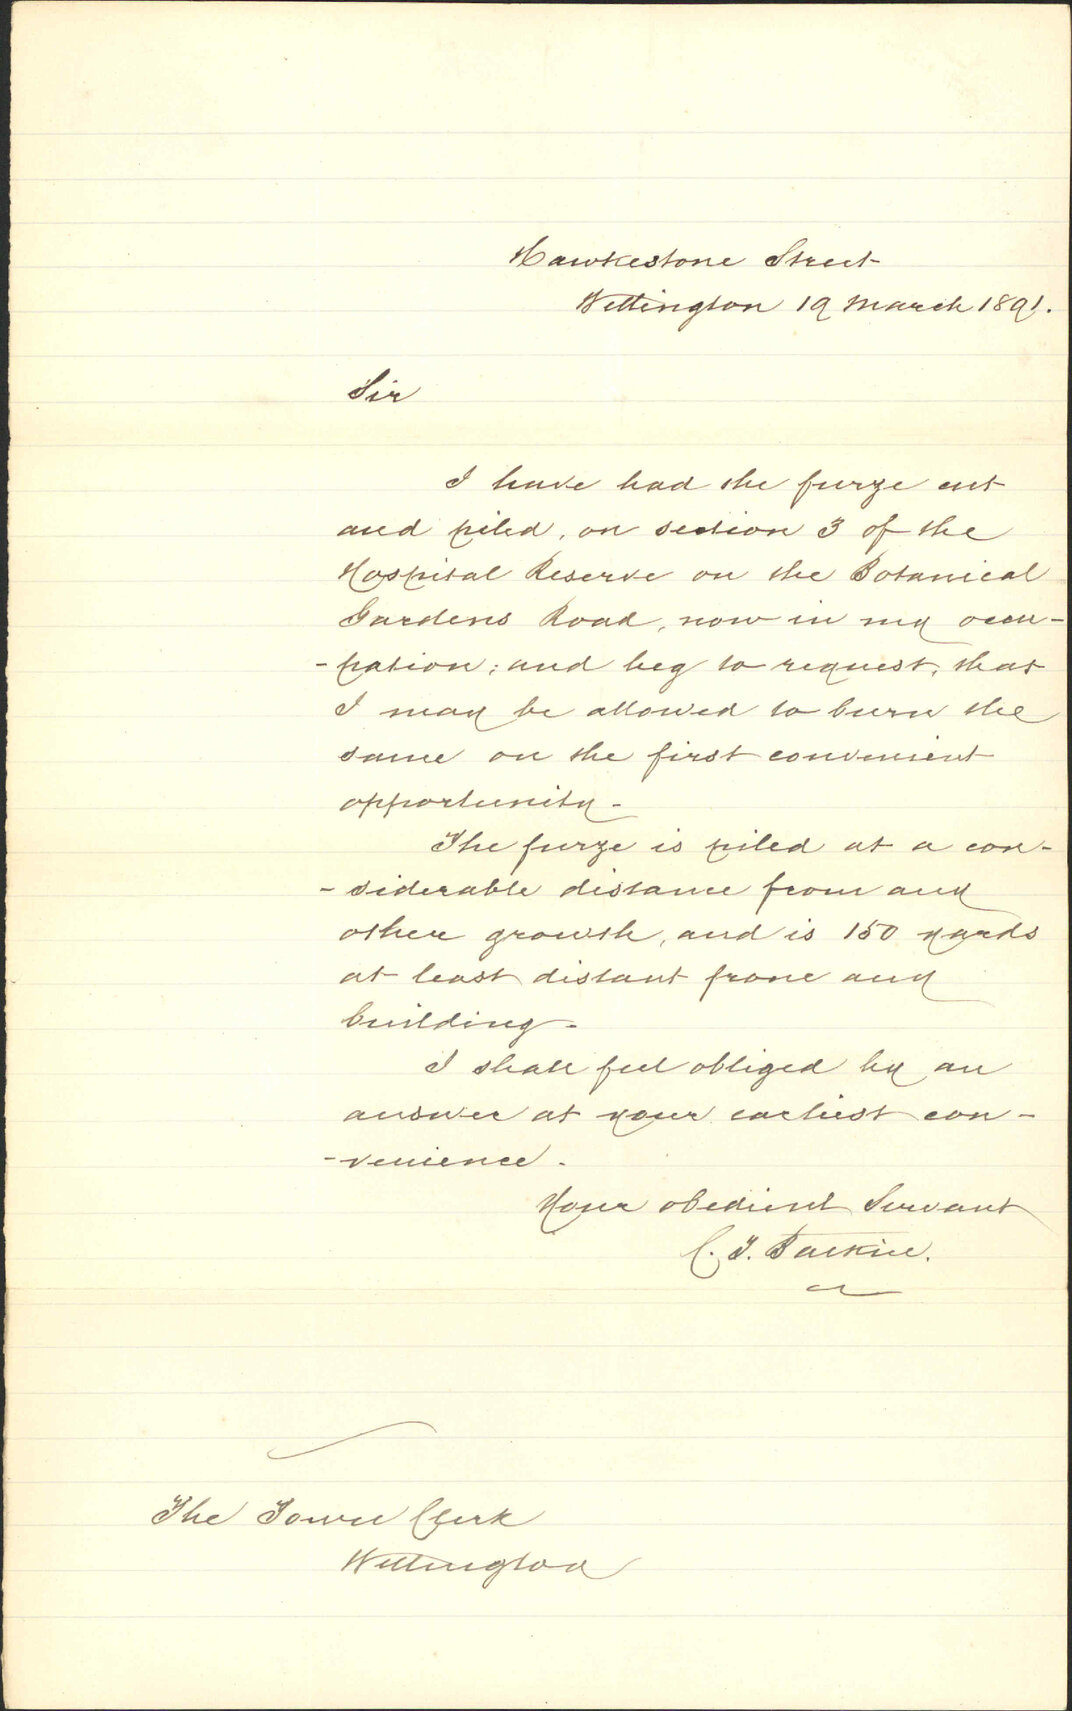 Hawkestone Street
Wellington 19 March 1891.
Sir
I have had the furze cut
and piled, on section 3 of the
Hospital Reserve on the Botanical
Gardens Road, now in my occu-
-pation; and beg to request, that
I may be allowed to burn the
same on the first convenient
opportunity -
The furze is piled at a con-
-siderable distance from any
other growth, and is 150 yards
at least distant from any
building -
I shall feel obliged by an
answer at your earliest con-
-venience.
Your obedient Servant
C. T.
The Town Clerk
Wellington